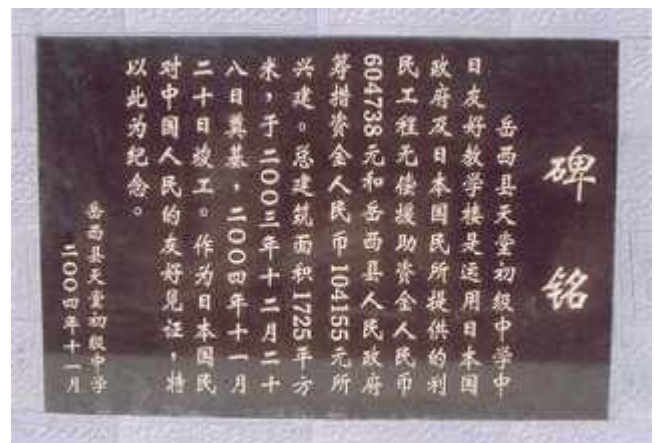 碑铭
岳西县天堂初级中学中
日友好教学楼是运用日本国
政府及日本国民所提供的利
民工程无偿援助资金人民币
604738元和岳西县人民政府
筹措资金人民币104155元所
兴建。总建筑面积1725平方
米，于二〇〇三年十二月二十
八日奠基，二〇〇四年十一月
二十日竣工。作为日本国民
对中国人民的友好见证，特
以此为纪念。
岳西县天堂初级中学
二〇〇四年十一月